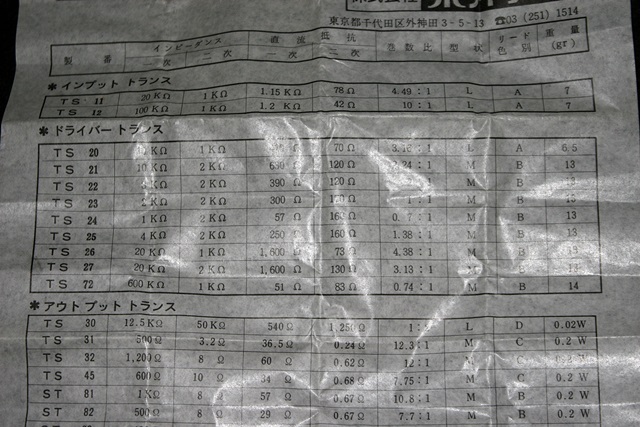 株式会社
東京都千代田区外神田3-5-13 ☎03 (251) 1514
製番 インピーダンス 一次 二次 直流抵抗 一次 二次 巻数比 型状 リード色別 重量(gr)
＊インプット トランス
TS 11 20KΩ 1KΩ 1.15KΩ 78Ω 4.49:1 L A 7
TS 12 100KΩ 1KΩ 1.2KΩ 42Ω 10:1 L A 7
＊ドライバー トランス
TS 20 1KΩ 70Ω L A 6.5
TS 21 10KΩ 2KΩ 120Ω M B 13
TS 22 2KΩ 390Ω 120Ω M B
TS 23 2KΩ 300Ω M B 13
TS 24 1KΩ 2KΩ 57Ω M B 13
TS 25 4KΩ 2KΩ 250Ω 1.38:1 M B 13
TS 26 20KΩ 1KΩ 1,600Ω 73Ω 4.38:1 M B
TS 27 20KΩ 2KΩ 1,600Ω 130Ω 3.13:1 M B
TS 72 600KΩ 1KΩ 51Ω 83Ω 0.74:1 M B 14
＊アウトプット トランス
TS 30 12.5KΩ 50KΩ 540Ω 1,250Ω L D 0.02W
TS 31 500Ω 3.2Ω 36.5Ω 0.24Ω M C 0.2W
TS 32 1,200Ω 8Ω 60Ω 0.62Ω 12:1 M 0.2W
TS 45 600Ω 10Ω 34Ω 0.68Ω 7.75:1 M C 0.2W
ST 81 1KΩ 8Ω 57Ω 0.67Ω 10.8:1 M B 0.2W
ST 82 500Ω 8Ω 29Ω 0.67Ω 7.7:1 M B 0.2W